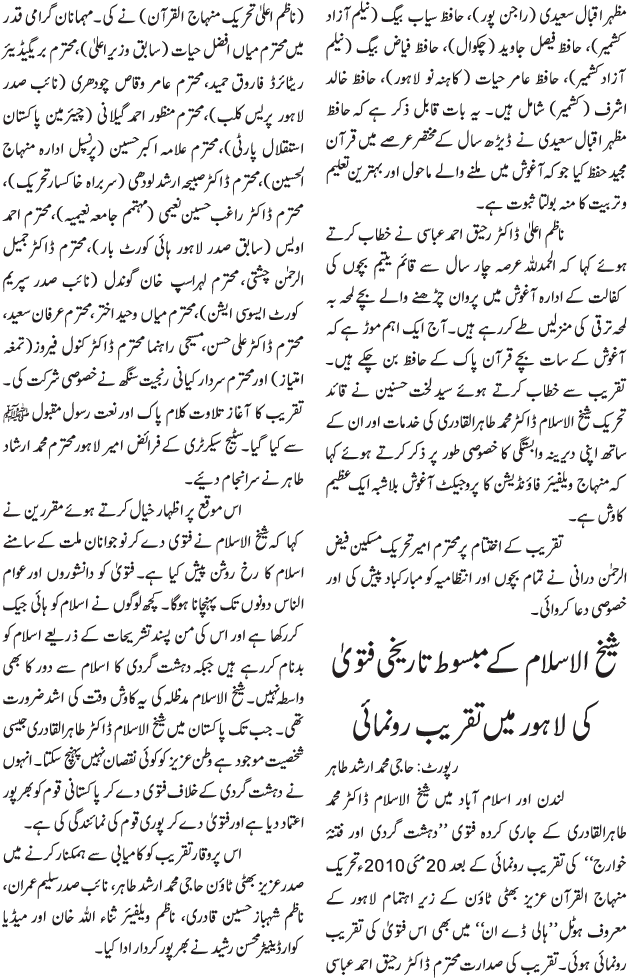 مظہر اقبال سعیدی (راجن پور)، حافظ سیاب بیگ (نیلم آزاد
کشمیر)، حافظ فیصل جاوید (چکوال)، حافظ فیاض بیگ (نیلم
آزاد کشمیر)، حافظ عامر حیات (کاہنہ نو لاہور)، حافظ خالد
اشرف (کشمیر) شامل ہیں۔ یہ بات قابل ذکر ہے کہ حافظ
مظہر اقبال سعیدی نے ڈیڑھ سال کے مختصر عرصے میں قرآن
مجید حفظ کیا جو کہ آغوش میں ملنے والے ماحول اور بہترین تعلیم
و تربیت کا منہ بولتا ثبوت ہے۔
ناظم اعلیٰ ڈاکٹر رحیق احمد عباسی نے خطاب کرتے
ہوئے کہا کہ الحمدللہ عرصہ چار سال سے قائم یتیم بچوں کی
کفالت کے ادارہ آغوش میں پروان چڑھنے والے بچے لمحہ بہ
لمحہ ترقی کی منزلیں طے کر رہے ہیں۔ آج ایک اہم موڑ ہے کہ
آغوش کے سات بچے قرآن پاک کے حافظ بن چکے ہیں۔
تقریب سے خطاب کرتے ہوئے سید لخت حسنین نے قائد
تحریک شیخ الاسلام ڈاکٹر محمد طاہرالقادری کی خدمات اور ان کے
ساتھ اپنی دیرینہ وابستگی کا خصوصی طور پر ذکر کرتے ہوئے کہا
کہ منہاج ویلفیئر فاؤنڈیشن کا پروجیکٹ آغوش بلاشبہ ایک عظیم
کاوش ہے۔
تقریب کے اختتام پر محترم امیر تحریک مسکین فیض
الرحمٰن درانی نے تمام بچوں اور انتظامیہ کو مبارکباد پیش کی اور
خصوصی دعا کروائی۔
شیخ الاسلام کے مبسوط تاریخی فتویٰ
کی لاہور میں تقریب رونمائی
رپورٹ: حاجی محمد ارشد طاہر
لندن اور اسلام آباد میں شیخ الاسلام ڈاکٹر محمد
طاہرالقادری کے جاری کردہ فتویٰ ’’دہشت گردی اور فتنۂ
خوارج‘‘ کی تقریب رونمائی کے بعد 20 مئی 2010ء تحریک
منہاج القرآن عزیز بھٹی ٹاؤن کے زیر اہتمام لاہور کے
معروف ہوٹل ’’ہالی ڈے ان‘‘ میں بھی اس فتویٰ کی تقریب
رونمائی ہوئی۔ تقریب کی صدارت محترم ڈاکٹر رحیق احمد عباسی
(ناظم اعلیٰ تحریک منہاج القرآن) نے کی۔ مہمانان گرامی قدر
میں محترم میاں افضل حیات (سابق وزیراعلیٰ)، محترم بریگیڈیئر
ریٹائرڈ فاروق حمید، محترم عامر وقاص چودھری (نائب صدر
لاہور پریس کلب)، محترم منظور احمد گیلانی (چیئرمین پاکستان
استقلال پارٹی)، محترم علامہ اکبر حسین (پرنسپل ادارہ منہاج
الحسین)، محترم ڈاکٹر صبیحہ ارشد لودھی (سربراہ خاکسار تحریک)،
محترم ڈاکٹر راغب حسین نعیمی (مہتمم جامعہ نعیمیہ)، محترم احمد
اویس (سابق صدر لاہور ہائی کورٹ بار)، محترم ڈاکٹر جمیل
الرحمٰن چشتی، محترم لہراسپ خان گوندل (نائب صدر سپریم
کورٹ ایسوسی ایشن)، محترم میاں وحید اختر، محترم عرفان سعید،
محترم ڈاکٹر علی حسن، مسیحی راہنما محترم ڈاکٹر کنول فیروز (تمغہ
امتیاز) اور محترم سردار کیانی رنجیت سنگھ نے خصوصی شرکت کی۔
تقریب کا آغاز تلاوت کلام پاک اور نعت رسول مقبول ﷺ
سے کیا گیا۔ سٹیج سیکرٹری کے فرائض امیر لاہور محترم محمد ارشاد
طاہر نے سرانجام دیئے۔
اس موقع پر اظہار خیال کرتے ہوئے مقررین نے
کہا کہ شیخ الاسلام نے فتویٰ دے کر نوجوانان ملت کے سامنے
اسلام کا رخ روشن پیش کیا ہے۔ فتویٰ کو دانشوروں اور عوام
الناس دونوں تک پہنچانا ہوگا۔ کچھ لوگوں نے اسلام کو ہائی جیک
کر رکھا ہے اور اس کی من پسند تشریحات کے ذریعے اسلام کو
بدنام کر رہے ہیں جبکہ دہشت گردی کا اسلام سے دور کا بھی
واسطہ نہیں۔ شیخ الاسلام مدظلہ کی یہ کاوش وقت کی اشد ضرورت
تھی۔ جب تک پاکستان میں شیخ الاسلام ڈاکٹر طاہرالقادری جیسی
شخصیت موجود ہے وطن عزیز کو کوئی نقصان نہیں پہنچ سکتا۔ انہوں
نے دہشت گردی کے خلاف فتویٰ دے کر پاکستانی قوم کو بھرپور
اعتماد دیا ہے اور فتویٰ دے کر پوری قوم کی نمائندگی کی ہے۔
اس پروقار تقریب کو کامیابی سے ہمکنار کرنے میں
صدر عزیز بھٹی ٹاؤن حاجی محمد ارشد طاہر، نائب صدر سلیم عمران،
ناظم شہباز حسین قادری، ناظم ویلفیئر ثناء اللہ خان اور میڈیا
کوارڈینیٹر محسن رشید نے بھرپور کردار ادا کیا۔